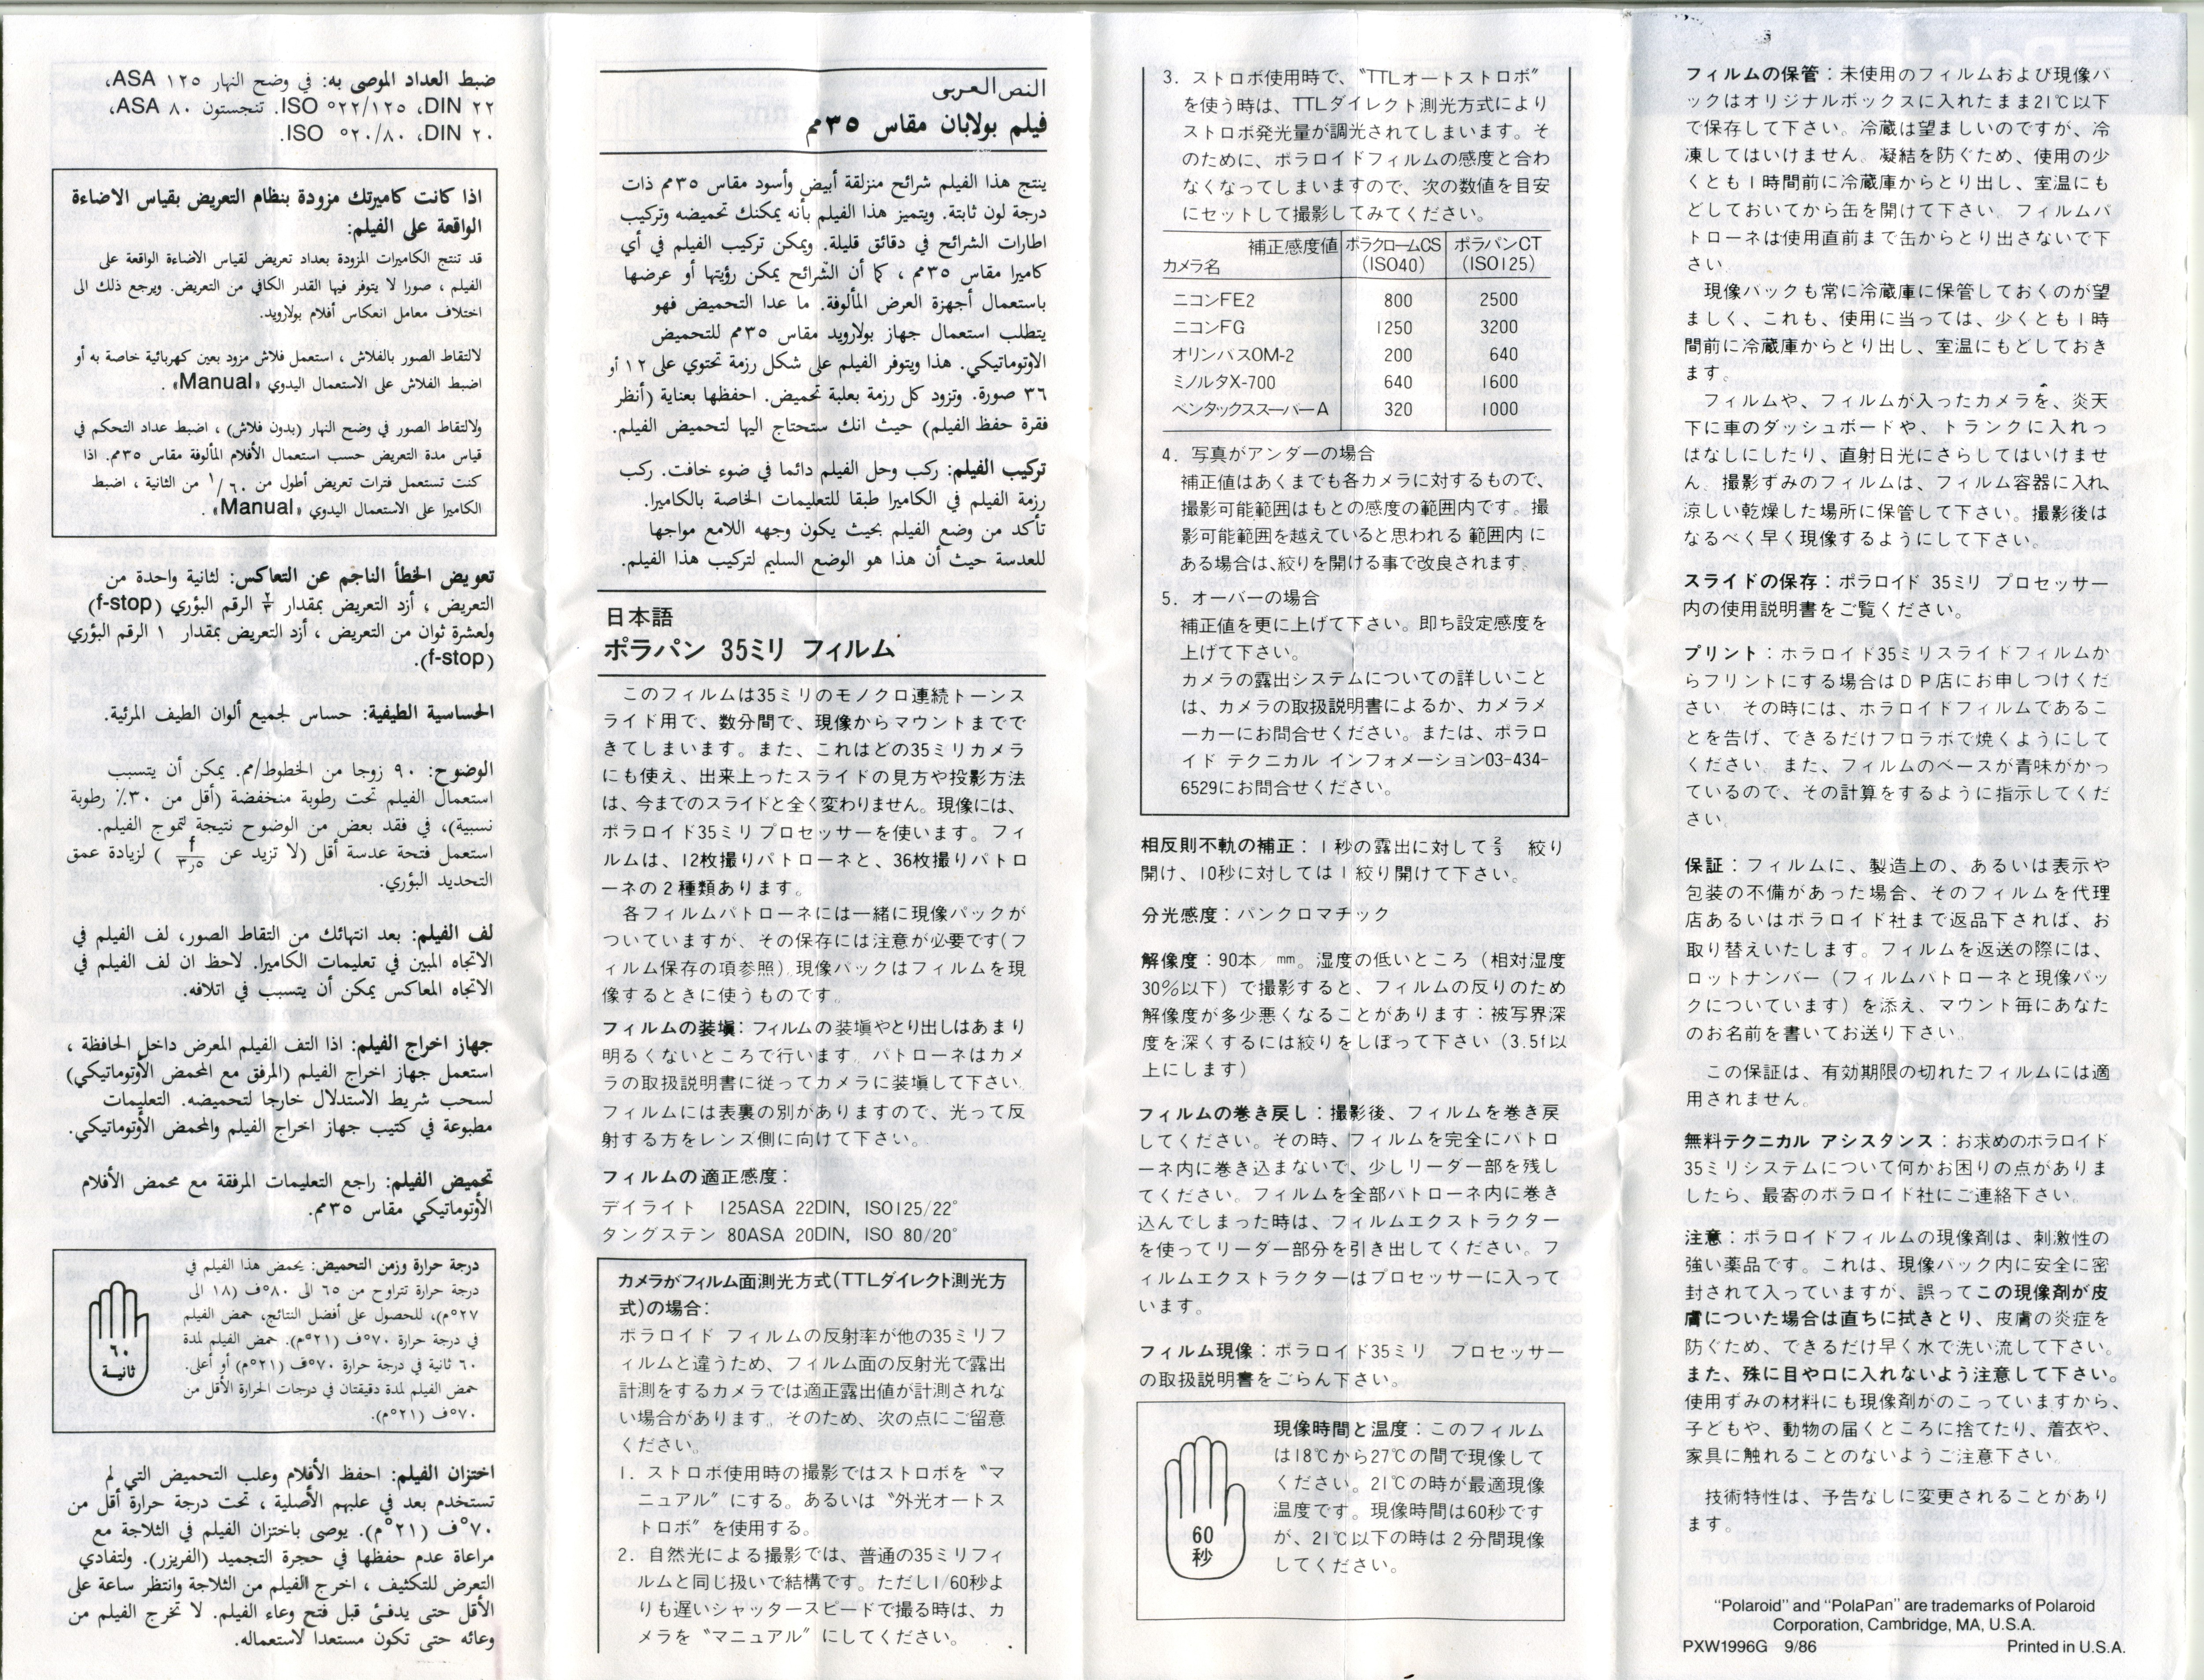 النص العربي
فيلم بولابان مقاس ٣٥مم
ينتج هذا الفيلم شرائح منزلقة أبيض وأسود مقاس ٣٥مم ذات
درجة لون ثابتة. ويتميز هذا الفيلم بأنه يمكنك تحميضه وتركيب
اطارات الشرائح في دقائق قليلة. ويمكن تركيب الفيلم في أي
كاميرا مقاس ٣٥مم ، كما أن الشرائح يمكن رؤيتها أو عرضها
باستعمال أجهزة العرض المألوفة. ما عدا التحميض فهو
يتطلب استعمال جهاز بولارويد مقاس ٣٥مم للتحميض
الاوتوماتيكي. هذا ويتوفر الفيلم على شكل رزمة تحتوي على ١٢ أو
٣٦ صورة. وتزود كل رزمة بعلبة تحميض. احفظها بعناية (أنظر
فقرة حفظ الفيلم) حيث انك ستحتاج اليها لتحميض الفيلم.
تركيب الفيلم: ركب وحل الفيلم دائما في ضوء خافت. ركب
رزمة الفيلم في الكاميرا طبقا للتعليمات الخاصة بالكاميرا.
تأكد من وضع الفيلم بحيث يكون وجهه اللامع مواجها
للعدسة حيث أن هذا هو الوضع السليم لتركيب هذا الفيلم.
ضبط العداد الموصى به: في وضح النهار ١٢٥ ASA،
٢٢ DIN، ١٢٥/٢٢° ISO. تنجستون ٨٠ ASA،
٢٠ DIN، ٨٠/٢٠° ISO.
اذا كانت كاميرتك مزودة بنظام التعريض بقياس الاضاءة
الواقعة على الفيلم:
قد تنتج الكاميرات المزودة بعداد تعريض لقياس الاضاءة الواقعة على
الفيلم ، صورا لا يتوفر فيها القدر الكافي من التعريض. ويرجع ذلك الى
اختلاف معامل انعكاس أفلام بولارويد.
لالتقاط الصور بالفلاش ، استعمل فلاش مزود بعين كهربائية خاصة به أو
اضبط الفلاش على الاستعمال اليدوي «Manual».
ولالتقاط الصور في وضح النهار (بدون فلاش) ، اضبط عداد التحكم في
قياس مدة التعريض حسب استعمال الأفلام المألوفة مقاس ٣٥مم. اذا
كنت تستعمل فترات تعريض أطول من ١/٦٠ من الثانية ، اضبط
الكاميرا على الاستعمال اليدوي «Manual».
تعويض الخطأ الناجم عن التعاكس: لثانية واحدة من
التعريض ، أزد التعريض بمقدار ٢/٣ الرقم البؤري (f-stop)
ولعشرة ثوان من التعريض ، أزد التعريض بمقدار ١ الرقم البؤري
(f-stop).
الحساسية الطيفية: حساس لجميع ألوان الطيف المرئية.
الوضوح: ٩٠ زوجا من الخطوط/مم. يمكن أن يتسبب
استعمال الفيلم تحت رطوبة منخفضة (أقل من ٣٠٪ رطوبة
نسبية)، في فقد بعض من الوضوح نتيجة لتموج الفيلم.
استعمل فتحة عدسة أقل (لا تزيد عن f/٣٫٥) لزيادة عمق
التحديد البؤري.
لف الفيلم: بعد انتهائك من التقاط الصور، لف الفيلم في
الاتجاه المبين في تعليمات الكاميرا. لاحظ ان لف الفيلم في
الاتجاه المعاكس يمكن أن يتسبب في اتلافه.
جهاز اخراج الفيلم: اذا التف الفيلم المعرض داخل الحافظة ،
استعمل جهاز اخراج الفيلم (المرفق مع المحمض الأوتوماتيكي)
لسحب شريط الاستدلال خارجا لتحميضه. التعليمات
مطبوعة في كتيب جهاز اخراج الفيلم والمحمض الأوتوماتيكي.
تحميض الفيلم: راجع التعليمات المرفقة مع محمض الأفلام
الأوتوماتيكي مقاس ٣٥مم.
٦٠
ثانية
درجة حرارة وزمن التحميض: يحمض هذا الفيلم في
درجة حرارة تتراوح من ٦٥ الى ٨٠°ف (١٨ الى
٢٧°م)، للحصول على أفضل النتائج، حمض الفيلم
في درجة حرارة ٧٠°ف (٢١°م). حمض الفيلم لمدة
٦٠ ثانية في درجة حرارة ٧٠°ف (٢١°م) أو أعلى.
حمض الفيلم لمدة دقيقتان في درجات الحرارة الأقل من
٧٠°ف (٢١°م).
اختزان الفيلم: احفظ الأفلام وعلب التحميض التي لم
تستخدم بعد في علبهم الأصلية ، تحت درجة حرارة أقل من
٧٠°ف (٢١°م). يوصى باختزان الفيلم في الثلاجة مع
مراعاة عدم حفظها في حجرة التجميد (الفريزر). ولتفادي
التعرض للتكثيف ، اخرج الفيلم من الثلاجة وانتظر ساعة على
الأقل حتى يدفئ قبل فتح وعاء الفيلم. لا تخرج الفيلم من
وعائه حتى تكون مستعدا لاستعماله.
日本語
ポラパン 35ミリ フィルム
このフィルムは35ミリのモノクロ連続トーンス
ライド用で、数分間で、現像からマウントまでで
きてしまいます。また、これはどの35ミリカメラ
にも使え、出来上ったスライドの見方や投影方法
は、今までのスライドと全く変わりません。現像には、
ポラロイド35ミリプロセッサーを使います。フィ
ルムは、12枚撮りパトローネと、36枚撮りパトロ
ーネの2種類あります。
各フィルムパトローネには一緒に現像パックが
ついていますが、その保存には注意が必要です(フ
ィルム保存の項参照)。現像パックはフィルムを現
像するときに使うものです。
フィルムの装塡: フィルムの装塡やとり出しはあまり
明るくないところで行います。パトローネはカメ
ラの取扱説明書に従ってカメラに装塡して下さい。
フィルムには表裏の別がありますので、光って反
射する方をレンズ側に向けて下さい。
フィルムの適正感度:
デイライト 125ASA 22DIN, ISO125/22°
タングステン 80ASA 20DIN, ISO 80/20°
カメラがフィルム面測光方式(TTLダイレクト測光方
式)の場合:
ポラロイド フィルムの反射率が他の35ミリフ
ィルムと違うため、フィルム面の反射光で露出
計測をするカメラでは適正露出値が計測されな
い場合があります。そのため、次の点にご留意
ください。
1. ストロボ使用時の撮影ではストロボを〝マ
ニュアル〞にする。あるいは〝外光オートス
トロボ〞を使用する。
2. 自然光による撮影では、普通の35ミリフィ
ルムと同じ扱いで結構です。ただし1/60秒よ
りも遅いシャッタースピードで撮る時は、カ
メラを〝マニュアル〞にしてください。
3. ストロボ使用時で、〝TTLオートストロボ〞
を使う時は、TTLダイレクト測光方式により
ストロボ発光量が調光されてしまいます。そ
のために、ポラロイドフィルムの感度と合わ
なくなってしまいますので、次の数値を目安
にセットして撮影してみてください。
補正感度値 ポラクロームCS ポラパンCT
カメラ名 (ISO40) (ISO125)
ニコンFE2 800 2500
ニコンFG 1250 3200
オリンパスOM-2 200 640
ミノルタX-700 640 1600
ペンタックススーパーA 320 1000
4. 写真がアンダーの場合
補正値はあくまでも各カメラに対するもので、
撮影可能範囲はもとの感度の範囲内です。撮
影可能範囲を越えていると思われる 範囲内 に
ある場合は、絞りを開ける事で改良されます。
5. オーバーの場合
補正値を更に上げて下さい。即ち設定感度を
上げて下さい。
カメラの露出システムについての詳しいこと
は、カメラの取扱説明書によるか、カメラメ
ーカーにお問合せください。または、ポラロ
イド テクニカル インフォメーション03-434-
6529にお問合せください。
相反則不軌の補正: 1秒の露出に対して2/3 絞り
開け、10秒に対しては1絞り開けて下さい。
分光感度: パンクロマチック
解像度: 90本/mm。湿度の低いところ(相対湿度
30%以下)で撮影すると、フィルムの反りのため
解像度が多少悪くなることがあります: 被写界深
度を深くするには絞りをしぼって下さい(3.5f以
上にします)
フィルムの巻き戻し: 撮影後、フィルムを巻き戻
してください。その時、フィルムを完全にパトロ
ーネ内に巻き込まないで、少しリーダー部を残し
てください。フィルムを全部パトローネ内に巻き
込んでしまった時は、フィルムエクストラクター
を使ってリーダー部分を引き出してください。フ
ィルムエクストラクターはプロセッサーに入って
います。
フィルム現像: ポラロイド35ミリ プロセッサー
の取扱説明書をごらん下さい。
60
秒
現像時間と温度: このフィルム
は18℃から27℃の間で現像して
ください。21℃の時が最適現像
温度です。現像時間は60秒です
が、21℃以下の時は2分間現像
してください。
フィルムの保管: 未使用のフィルムおよび現像パ
ックはオリジナルボックスに入れたまま21℃以下
で保存して下さい。冷蔵は望ましいのですが、冷
凍してはいけません。凝結を防ぐため、使用の少
くとも1時間前に冷蔵庫からとり出し、室温にも
どしておいてから缶を開けて下さい。フィルムパ
トローネは使用直前まで缶からとり出さないで下
さい。
現像パックも常に冷蔵庫に保管しておくのが望
ましく、これも、使用に当っては、少くとも1時
間前に冷蔵庫からとり出し、室温にもどしておき
ます。
フィルムや、フィルムが入ったカメラを、炎天
下に車のダッシュボードや、トランクに入れっ
ぱなしにしたり、直射日光にさらしてはいけませ
ん。撮影ずみのフィルムは、フィルム容器に入れ、
涼しい乾燥した場所に保管して下さい。撮影後は
なるべく早く現像するようにして下さい。
スライドの保存: ポラロイド 35ミリ プロセッサー
内の使用説明書をご覧ください。
プリント: ポラロイド35ミリスライドフィルムか
らプリントにする場合はDP店にお申しつけくだ
さい。その時には、ポラロイドフィルムであるこ
とを告げ、できるだけプロラボで焼くようにして
ください。また、フィルムのベースが青味がかっ
ているので、その計算をするように指示してくだ
さい。
保証: フィルムに、製造上の、あるいは表示や
包装の不備があった場合、そのフィルムを代理
店あるいはポラロイド社まで返品下されば、お
取り替えいたします。フィルムを返送の際には、
ロットナンバー(フィルムパトローネと現像パッ
クについています)を添え、マウント毎にあなた
のお名前を書いてお送り下さい。
この保証は、有効期限の切れたフィルムには適
用されません。
無料テクニカル アシスタンス: お求めのポラロイド
35ミリシステムについて何かお困りの点がありま
したら、最寄のポラロイド社にご連絡下さい。
注意: ポラロイドフィルムの現像剤は、刺激性の
強い薬品です。これは、現像パック内に安全に密
封されて入っていますが、誤ってこの現像剤が皮
膚についた場合は直ちに拭きとり、皮膚の炎症を
防ぐため、できるだけ早く水で洗い流して下さい。
また、殊に目や口に入れないよう注意して下さい。
使用ずみの材料にも現像剤がのこっていますから、
子どもや、動物の届くところに捨てたり、着衣や、
家具に触れることのないようご注意下さい。
技術特性は、予告なしに変更されることがあり
ます。
"Polaroid" and "PolaPan" are trademarks of Polaroid
Corporation, Cambridge, MA, U.S.A.
PXW1996G 9/86 Printed in U.S.A.